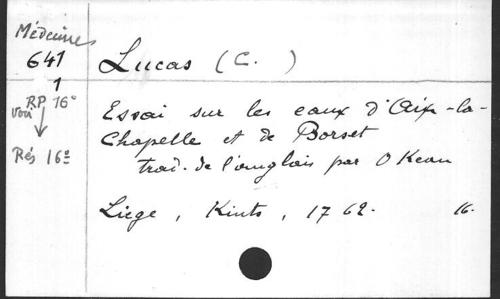 Médecine
641
1
RP 16°
voir
Rés 16°
Lucas (C. )
Essai sur les eaux d'Aix-la-
Chapelle et de Borset
trad. de l'anglais par O Kean
Liege, Kints, 1762. 16.